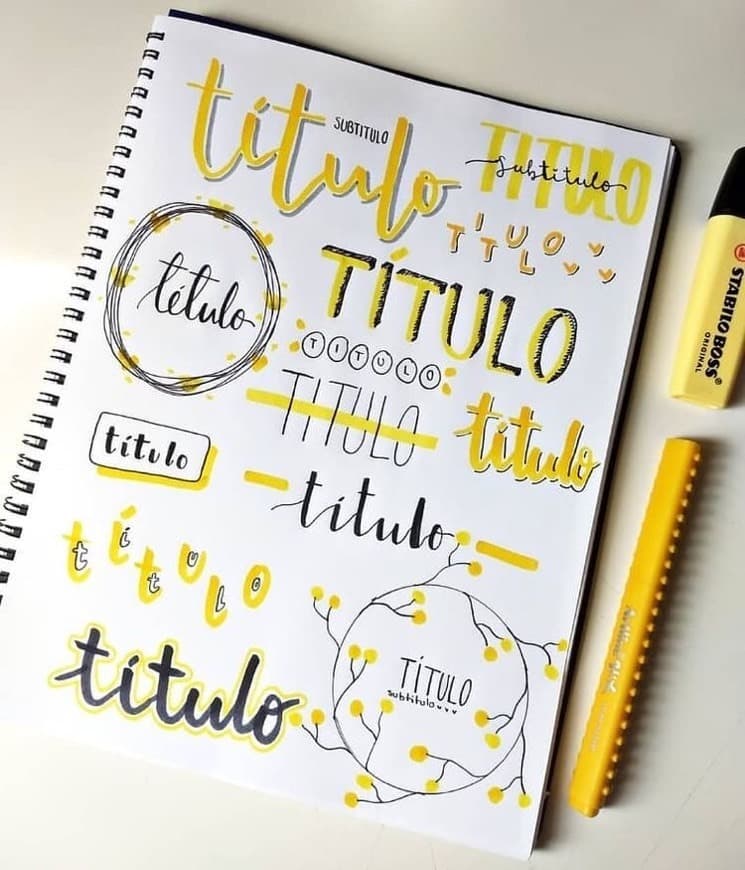 título
SUBTITULO
TITULO
subtitulo
TÍTULO
título
TÍTULO
TITULO
TITULO
título
título
título
título
título
TÍTULO
subtitulo
STABILO BOSS®
ORIGINAL